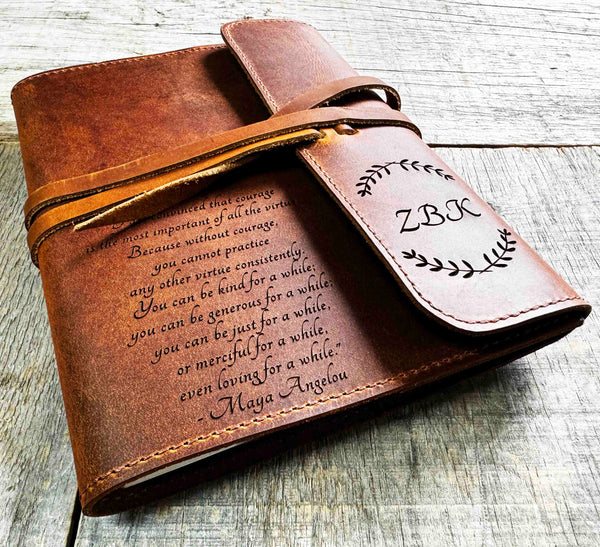 convinced that courage
is the most important of all the virtue
Because without courage,
you cannot practice
any other virtue consistently.
You can be kind for a while;
you can be generous for a while;
you can be just for a while,
or merciful for a while,
even loving for a while."
- Maya Angelou
ZBK